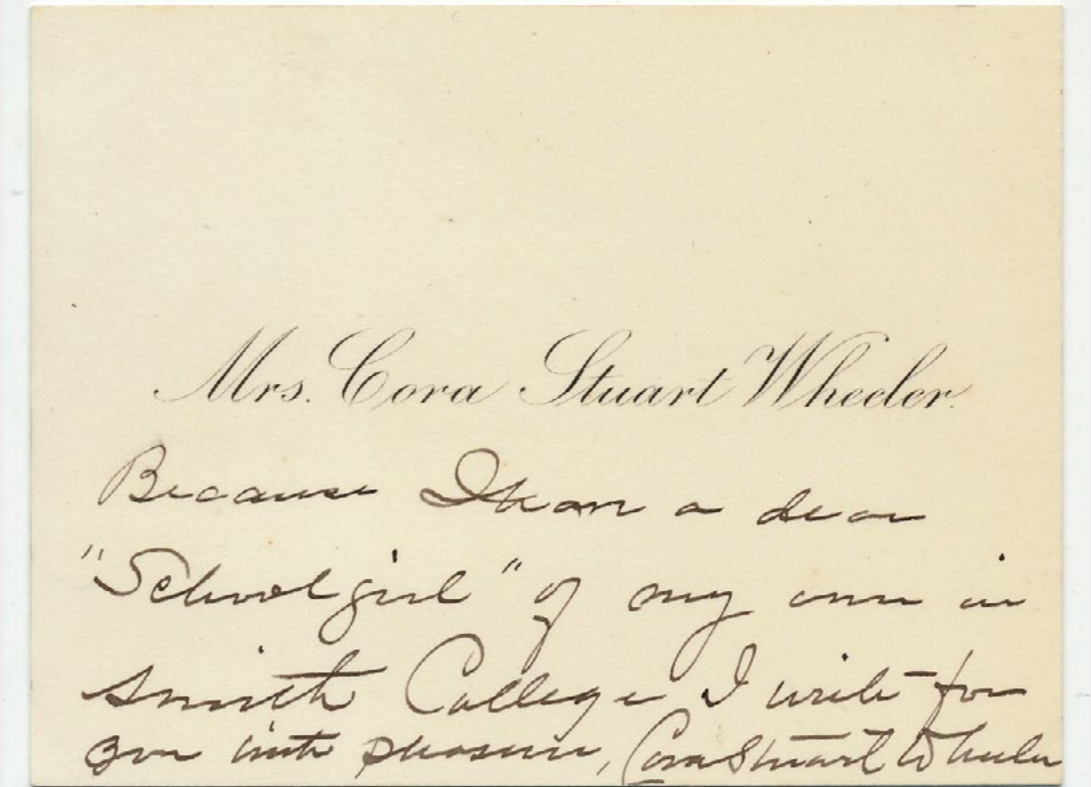 Mrs. Cora Stuart Wheeler.
Because I have a dear
"Schoolgirl" of my own in
Smith College I write for
you with pleasure, Cora Stuart Wheeler